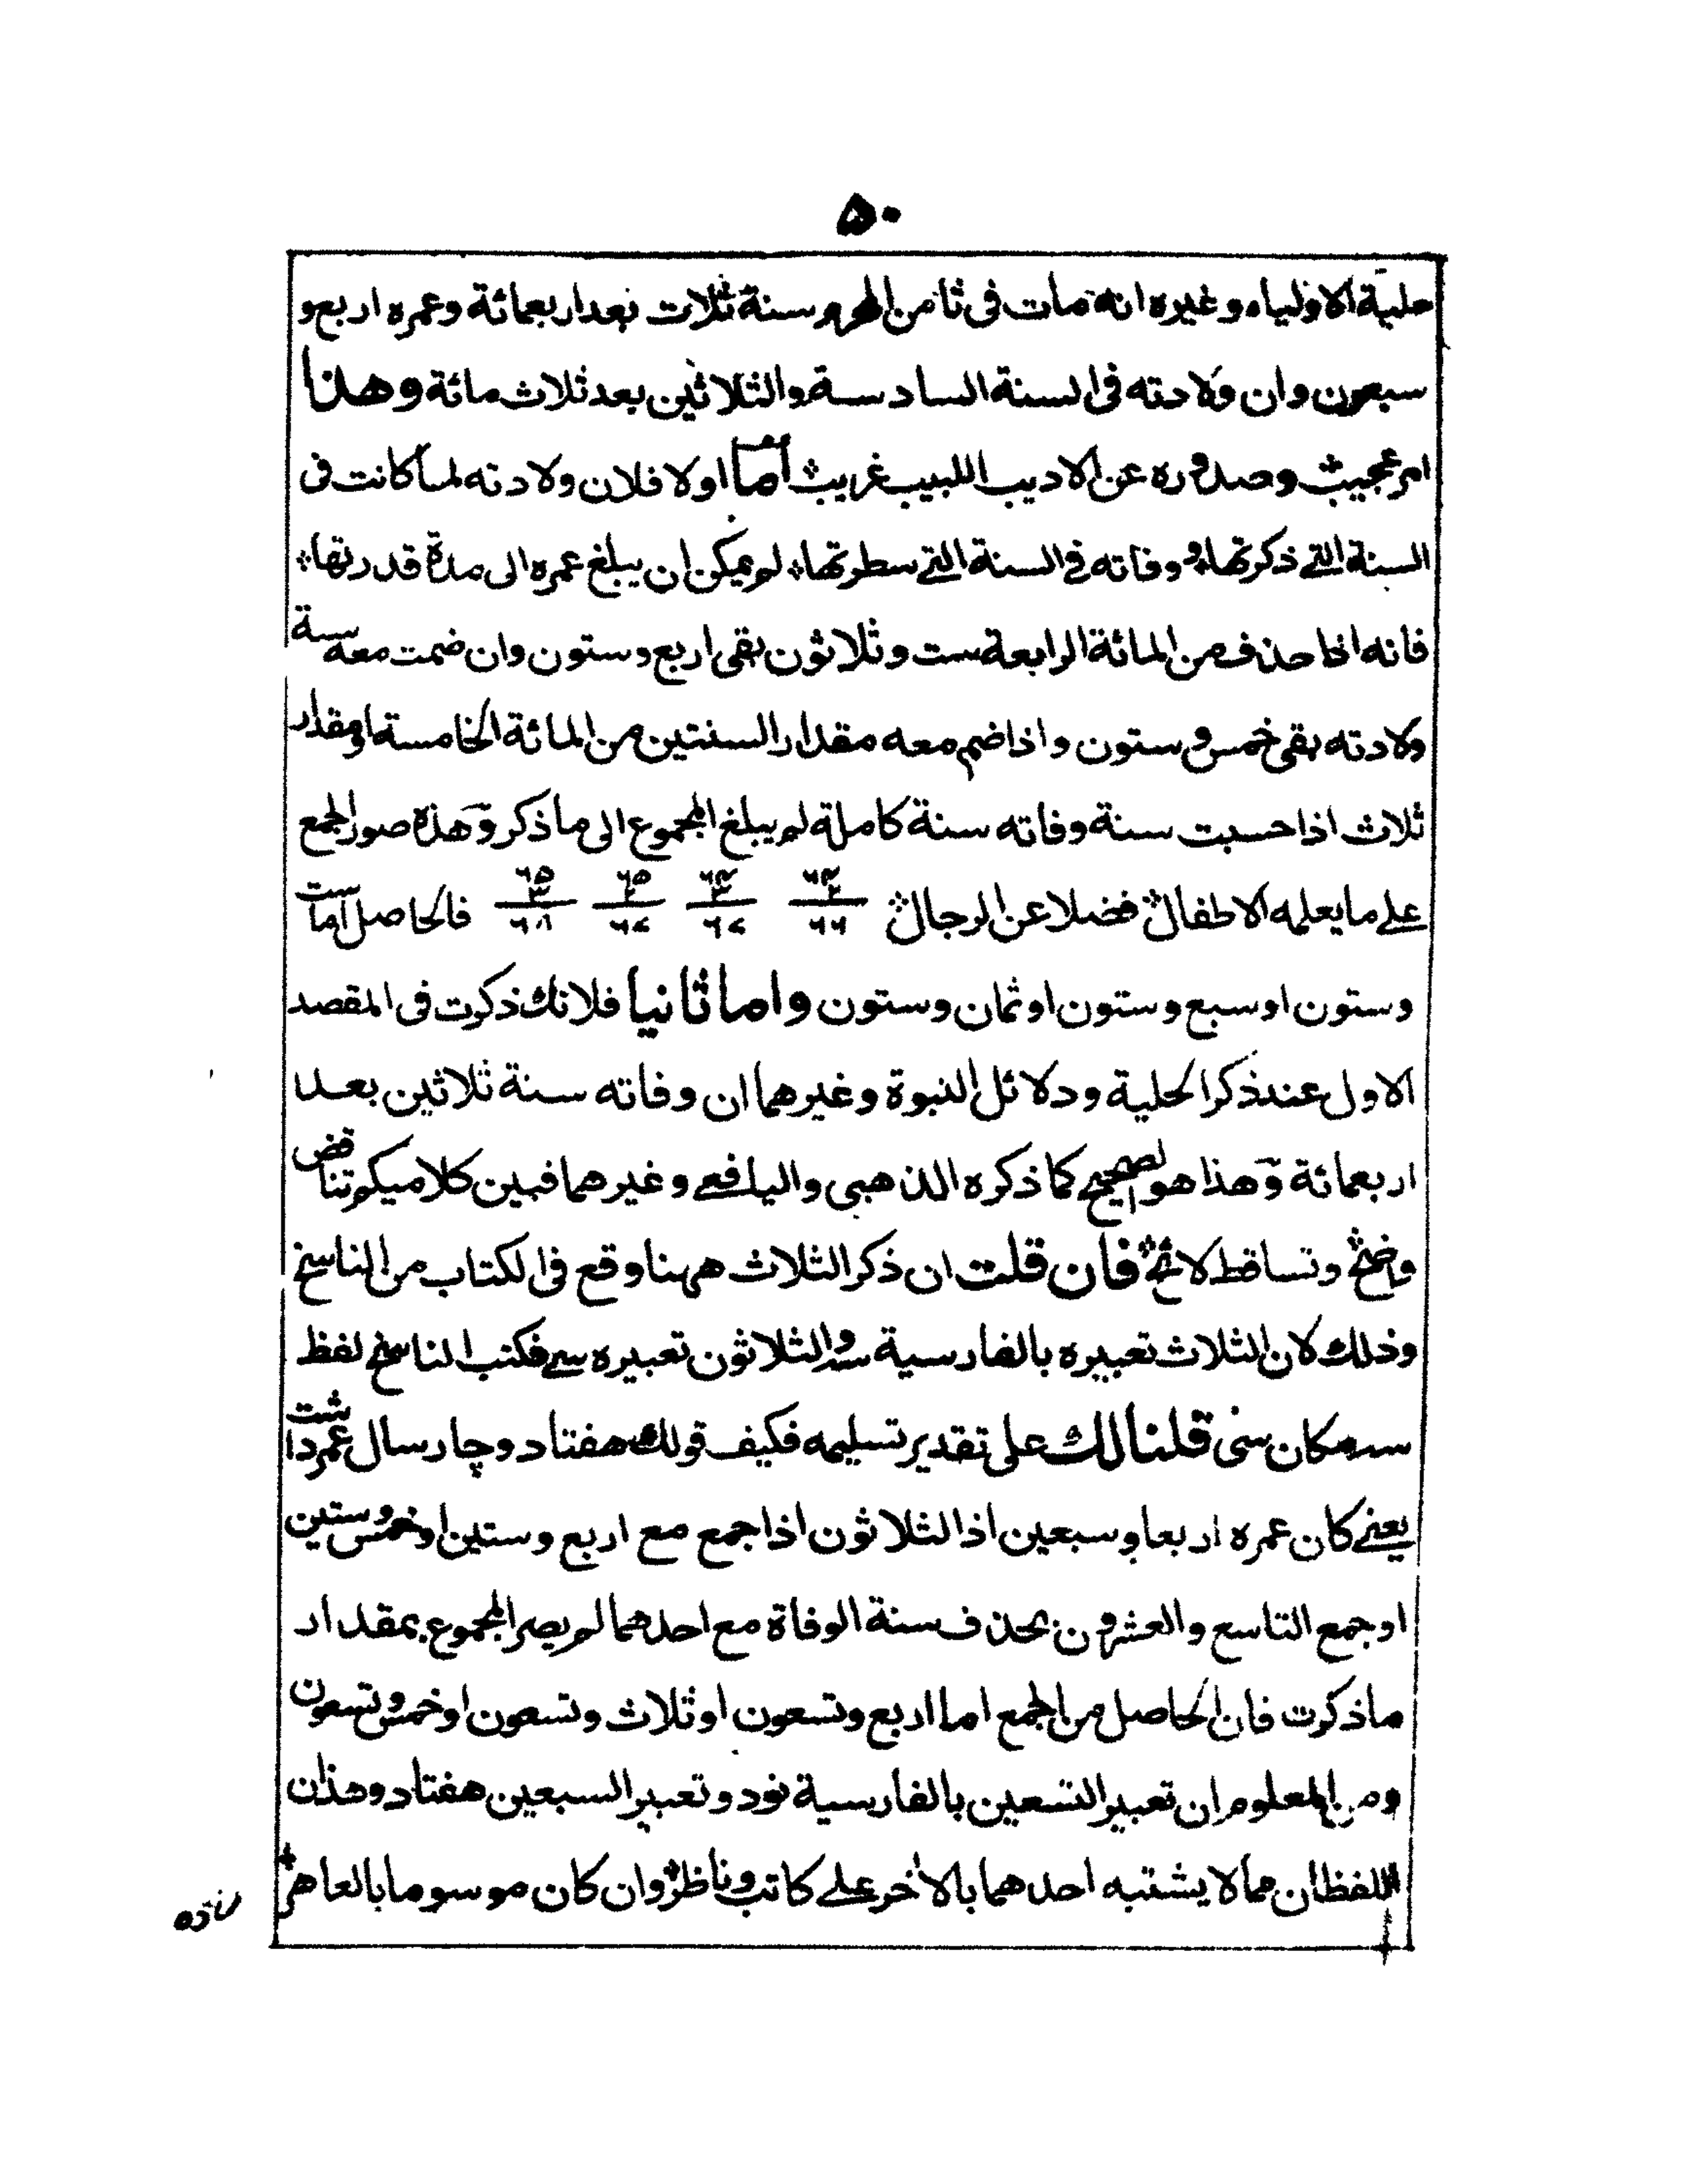 ۵۰
حلية الاولياء وغيره انه مات فى ثامن المحرم سنة ثلاث بعد اربعمائة وعمره اربع و
سبعون وان ولادته فى السنة السادسة والثلاثين بعد ثلاث مائة وهذا
امر عجيب وصدوره عن الاديب اللبيب غريب اما اولا فلان ولادته لما كانت فى
السنة التي ذكرتها ووفاته في السنة التي سطرتها لم يمكن ان يبلغ عمره الى مدة قدرتها
فانه اذا حذف من المائة الرابعة ست وثلاثون بقى اربع وستون وان ضمت معه سنة
ولادته بقى خمس وستون واذا ضم معه مقدار السنتين من المائة الخامسة او مقدار
ثلاث اذا حسبت سنة وفاته سنة كاملة لم يبلغ المجموع الى ما ذكر وهذه صور الجمع
على ما يعلمه الاطفال فضلا عن الرجال ۶۴ ۲ ۶۶ ۶۴ ۳ ۶۷ ۶۵ ۲ ۶۷ ۶۵ ۳ ۶۸ فالحاصل اما ست
وستون او سبع وستون او ثمان وستون واما ثانيا فلانك ذكرت فى المقصد
الاول عند ذكر الحلية ودلائل النبوة وغيرهما ان وفاته سنة ثلاثين بعد
اربعمائة وهذا هو الصحيح كما ذكره الذهبى واليافعے وغيرهما فبين كلاميكم تناقض
واضح وتساقط لائح فان قلت ان ذكر الثلاث ههنا وقع فى الكتاب من الناسخ
وذلك لان الثلاث تعبيره بالفارسية سه والثلاثون تعبيره سے فكتب الناسخ لفظ
سه مكان سى قلنا لك على تقدير تسليمه فكيف قولك هفتاد وچار سال عمر داشت
يعنے كان عمره اربعا وسبعين اذ الثلاثون اذا جمع مع اربع وستين او خمس وستين
او جمع التاسع والعشرون بحذف سنة الوفاة مع احدهما لم يصر المجموع بمقدار
ما ذكرت فان الحاصل من الجمع اما اربع وتسعون او ثلاث وتسعون او خمس وتسعون
ومن المعلوم ان تعبير التسعين بالفارسية نود وتعبير السبعين هفتاد وهذان
اللفظان مما لا يشتبه احدهما بالاخر علے كاتب وناظر وان كان موسوما بالعاهر